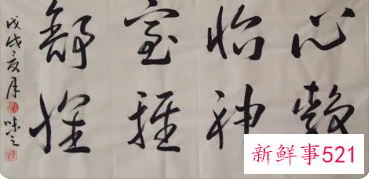 心
怡神
室雅
舒怀
戊戌夏月
新鲜事521